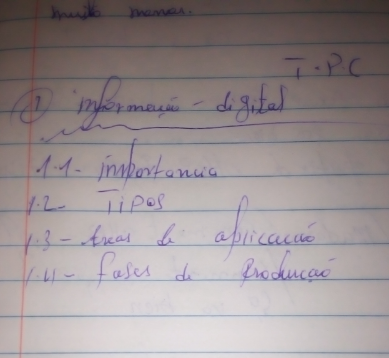 muito menos.
T.P.C
① informação - digital
1.1- importancia
1.2- Tipos
1.3- Areas de aplicação
1.4- fases de Produção